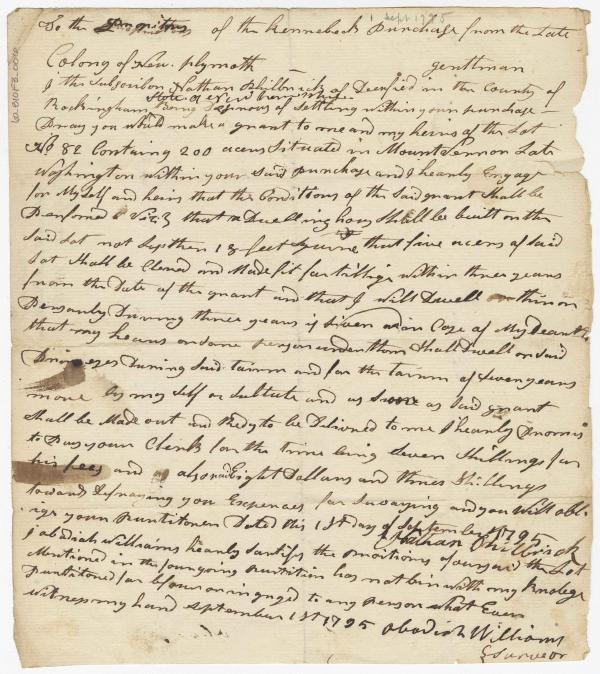 1 Sept 1795
To the Propriters of the Kennebeck Purchase from the Late
Colony of New plymoth — gentlman
I the Subscriber Nathan Philbrick of Deerfied in the County of
Rockingham State of New hampshire Being Desirous of Settling within your purchase —
Pray you would make a grant to me and my heirs of the Lot
No 82 Containg 200 acers Situated in Mount Vernon Late
Washington within your Said Purchase and I hearby Engage
for My Self and heirs that the Conditions of the Said grant Shall be
Performed Viz that a Dwelling hous Shall be built on the
Said Lot not less then 18 feet Square that five acers of Said
Lot Shall be Cleared and Made fit for tillage within three years
from the Date of the grant and that I will Dwell thereon
Personly During three years if Liven and in Case of My Death
that my heirs or Some person under them Shall Dwell on Said
Primezes During Said tairm and for the tairm of Seven years
more by my Self or Subtute and as Soone as Said grant
Shall be Made out and Redy to be Delivred to me I hearby Promis
to Pay your Clerk for the time being Seven Shillings for
his fees and also Eight Dollars and three Shillings
towards Defraying you Expences for Survaying and you will obli-
ige your Puntitoner Dated this 1st Day of September 1795
Nathan Philbrick
I obadiah Williams hearby Sartify the of the Lot
Mentioned in the foregoing Puntition has not bin with my Knolege
Puntitoned for before or ingaged to any Person what Ever
witness my hand September 1st 1795 obadiah Williams
Surveor